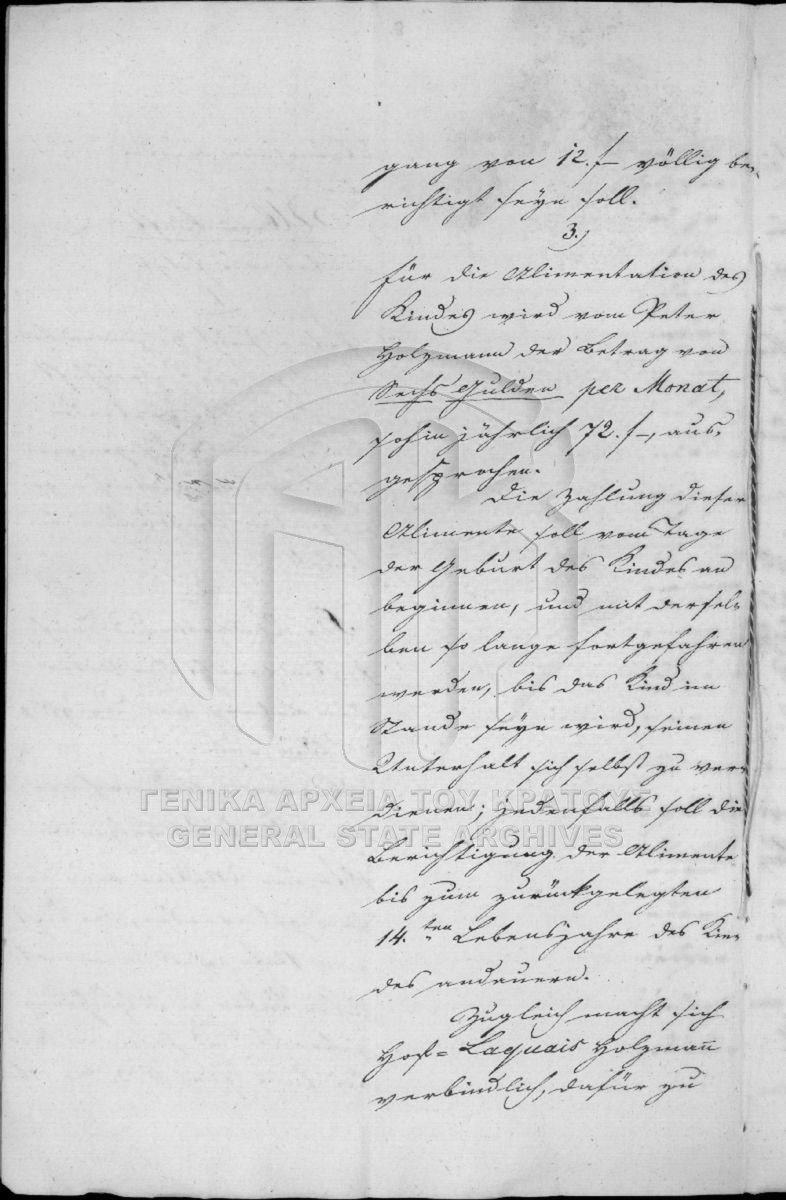 gang von 12. f— völlig be-
richtigt seyn soll.
3.)
Für die Alimentation des
Kindes wird vom Peter
Holzmann der Betrag von
Sechs Gulden per Monat,
sohin jährlich 72. f—, aus-
gesprochen.
Die Zahlung dieser
Alimente soll vom Tage
der Geburt des Kindes an
beginnen, und mit dersel-
ben so lange fortgefahren
werden, bis das Kind im
Stande seyn wird, seinen
Unterhalt sich selbst zu ver-
ΓΕΝΙΚΑ ΑΡΧΕΙΑ ΤΟΥ ΚΡΑΤΟΥΣ
dienen; jedenfalls soll die
GENERAL STATE ARCHIVES
Berichtigung der Alimente
bis zum zurückgelegten
14.ten Lebensjahre des Kin-
des andauern.
Zugleich macht sich
Hof=Laquais Holzmann
verbindlich, dafür zu